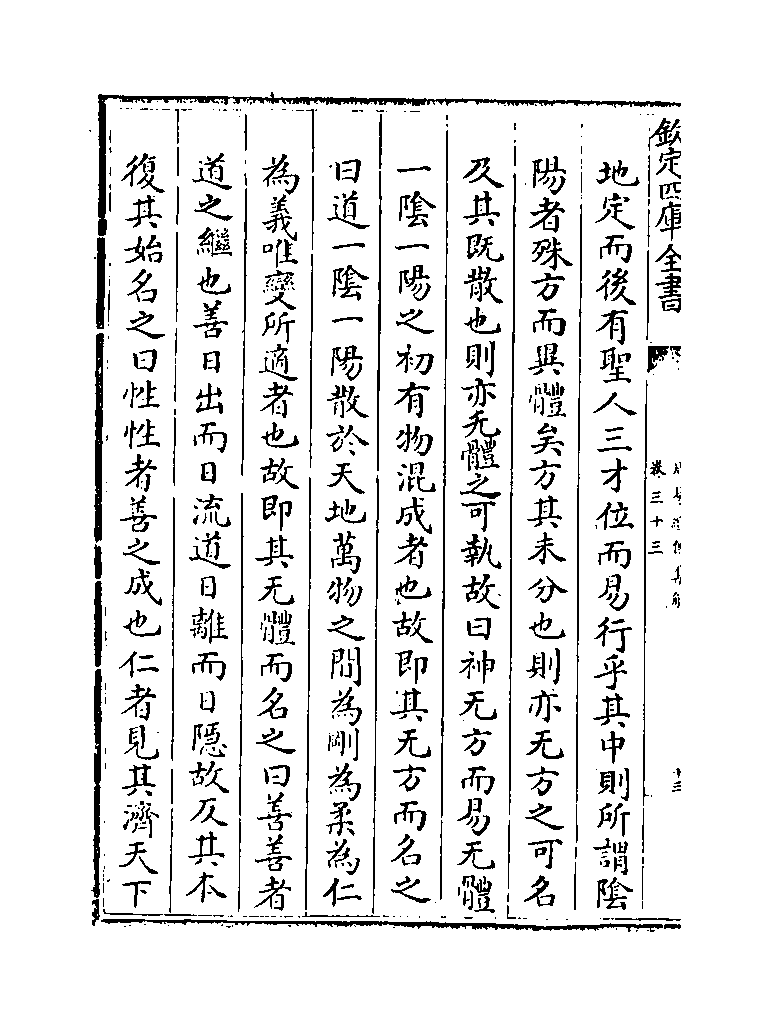 欽定四庫全書
卷三十三
十三
地定而後有聖人三才位而易行乎其中則所謂陰
陽者殊方而異體矣方其未分也則亦无方之可名
及其既散也則亦无體之可執故曰神无方而易无體
一陰一陽之初有物混成者也故即其无方而名之
曰道一陰一陽散於天地萬物之間為剛為柔為仁
為義唯變所適者也故即其无體而名之曰善善者
道之繼也善日出而日流道日離而日隱故反其本
復其始名之曰性性者善之成也仁者見其濟天下